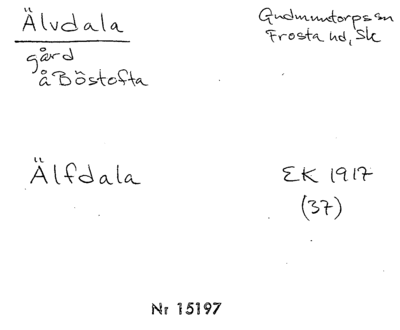 Älvdala
gård
å Böstofta
Gudmuntorps sn
Frosta hd, Sk
Älfdala
EK 1917
(37)
Nr 15197